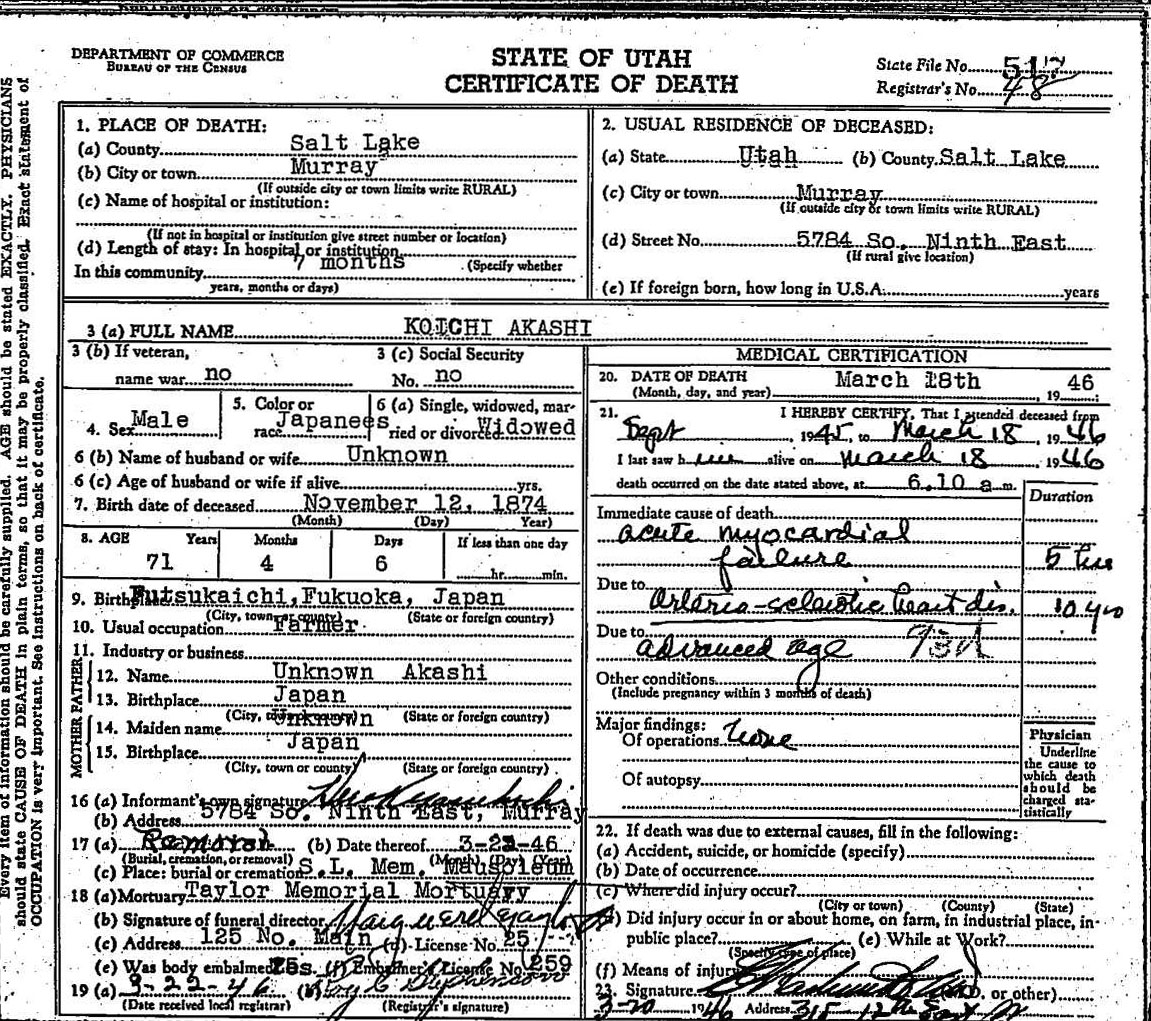 DEPARTMENT OF COMMERCE
BUREAU OF THE CENSUS
STATE OF UTAH
CERTIFICATE OF DEATH
State File No.
Registrar's No. 48
Every item of information should be carefully supplied. AGE should be stated EXACTLY. PHYSICIANS
should state CAUSE OF DEATH in plain terms, so that it may be properly classified. Exact statement of
OCCUPATION is very important. See instructions on back of certificate.
1. PLACE OF DEATH:
(a) County Salt Lake
(b) City or town Murray
(If outside city or town limits write RURAL)
(c) Name of hospital or institution:
(If not in hospital or institution give street number or location)
(d) Length of stay: In hospital or institution
In this community 7 months (Specify whether
years, months or days)
2. USUAL RESIDENCE OF DECEASED:
(a) State Utah (b) County Salt Lake
(c) City or town Murray
(If outside city or town limits write RURAL)
(d) Street No. 5784 So. Ninth East
(If rural give location)
(e) If foreign born, how long in U.S.A. years
3 (a) FULL NAME KOICHI AKASHI
3 (b) If veteran,
name war no
3 (c) Social Security
No. no
4. Sex Male
5. Color or
race Japanees
6 (a) Single, widowed, mar-
ried or divorced Widowed
6 (b) Name of husband or wife Unknown
6 (c) Age of husband or wife if alive yrs.
7. Birth date of deceased November 12, 1874
(Month) (Day) Year)
8. AGE Years Months Days If less than one day
71 4 6 hr. min.
9. Birthplace Futsukaichi, Fukuoka, Japan
(City, town or county) (State or foreign country)
10. Usual occupation Farmer
11. Industry or business
FATHER
12. Name Unknown Akashi
13. Birthplace Japan
(City, town or county) (State or foreign country)
MOTHER
14. Maiden name Unknown
15. Birthplace Japan
(City, town or county) (State or foreign country)
16 (a) Informant's own signature
(b) Address 5784 So. Ninth East, Murray
17 (a) (b) Date thereof 3-22-46
(Burial, cremation, or removal) (Month) (Day) (Year)
(c) Place: burial or cremation S.L. Mem. Mausoleum
18 (a) Mortuary Taylor Memorial Mortuary
(b) Signature of funeral director
(c) Address 125 No. Main (d) License No. 25
(e) Was body embalmed (f) Embalmer's License No. 259
19 (a) 3-22-46 (b) Roy C Stephenson
(Date received local registrar) (Registrar's signature)
MEDICAL CERTIFICATION
20. DATE OF DEATH March 18th 1946
(Month, day, and year)
21. I HEREBY CERTIFY, That I attended deceased from
Sept, 1945, to March 18, 1946
I last saw him alive on March 18 1946
death occurred on the date stated above, at 6.10 a m.
Duration
Immediate cause of death
acute myocardial
failure 5
Due to
Arterio-sclerotic heart dis. 10 yrs
Due to
advanced age 93d
Other conditions
(Include pregnancy within 3 months of death)
Major findings:
Of operations none
Of autopsy
Physician
Underline
the cause to
which death
should be
charged sta-
tistically
22. If death was due to external causes, fill in the following:
(a) Accident, suicide, or homicide (specify)
(b) Date of occurrence
(c) Where did injury occur?
(City or town) (County) (State)
(d) Did injury occur in or about home, on farm, in industrial place, in-
public place? (e) While at Work?
(Specify type of place)
(f) Means of injury
23. Signature (M.D. or other)
3-20 1946 Address 315